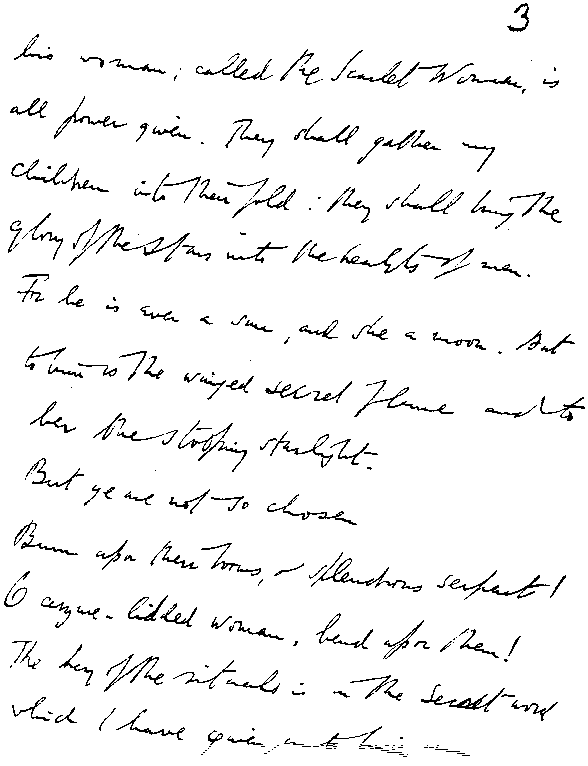 3
his woman; called the Scarlet Woman, is
all power given. They shall gather my
children into their fold: they shall bring the
glory of the stars into the hearts of men.
For he is ever a sun, and she a moon. But
to him is the winged secret flame and to
her the stooping starlight.
But ye are not so chosen
Burn upon their brows, o splendrous serpent!
O azure-lidded woman, bend upon them!
The key of the rituals is in the secret word
which I have given unto him